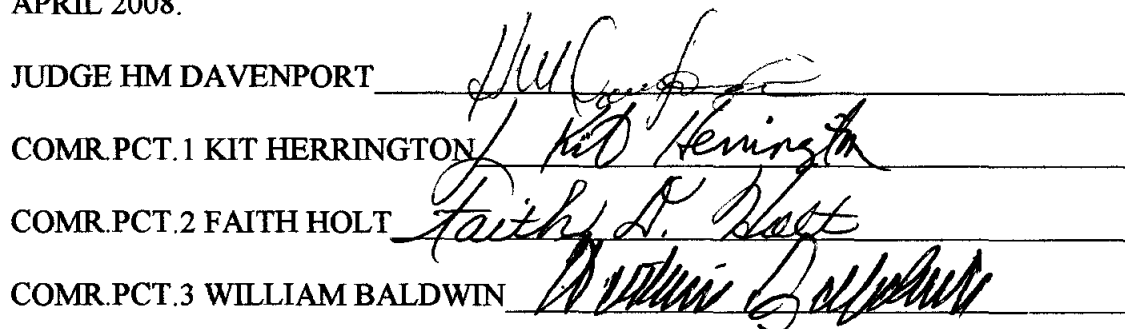 APRIL 2008.
JUDGE HM DAVENPORT HM Davenport
COMR.PCT.1 KIT HERRINGTON Kit Herrington
COMR.PCT.2 FAITH HOLT Faith D. Holt
COMR.PCT.3 WILLIAM BALDWIN William Baldwin